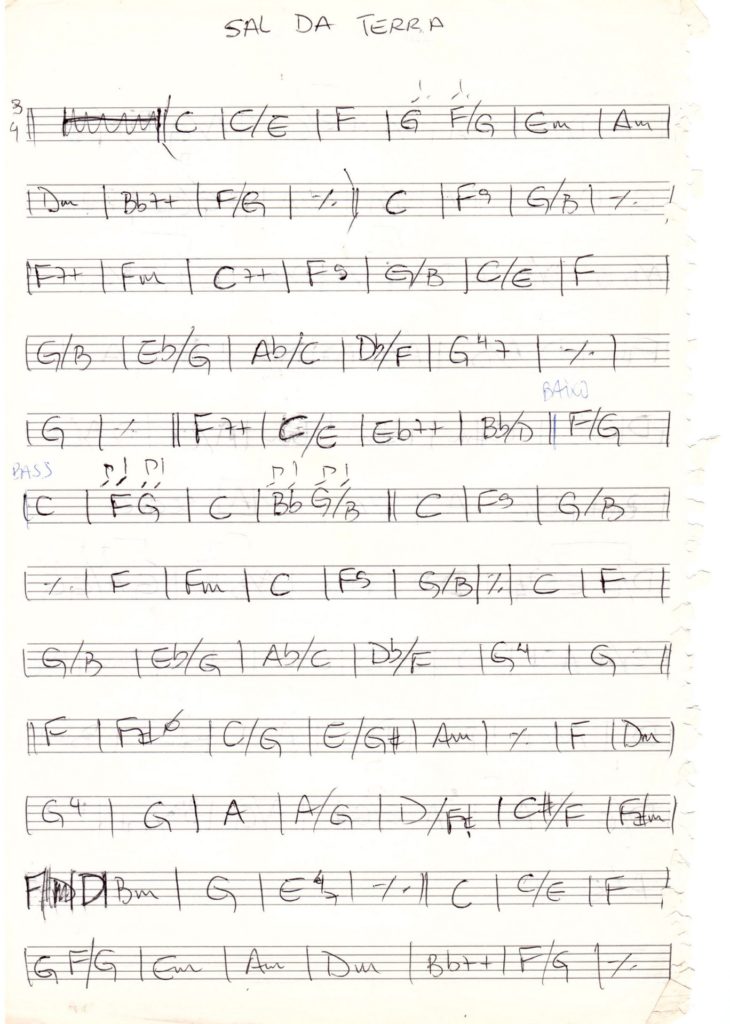 SAL DA TERRA
3/4 || C | C/E | F | G F/G | Em | Am |
| Dm | Bb7+ | F/G | ٪ || C | F9 | G/B | ٪ |
| F7+ | Fm | C7+ | F9 | G/B | C/E | F
| G/B | Eb/G | Ab/C | Db/F | G47 | ٪ |
BAIXO
| G | ٪ || F7+ | C/E | Eb7+ | Bb/D || F/G |
BASS
| C | F G | C | Bb G/B || C | F9 | G/B
| ٪ | F | Fm | C | F9 | G/B | ٪ | C | F |
| G/B | Eb/G | Ab/C | Db/F | G4 | G ||
|| F | F#º | C/G | E/G# | Am | ٪ | F | Dm |
| G4 | G | A | A/G | D/F# | C#/F | F#m |
D | Bm | G | E4 | ٪ || C | C/E | F |
| G F/G | Em | Am | Dm | Bb7+ | F/G | ٪ |